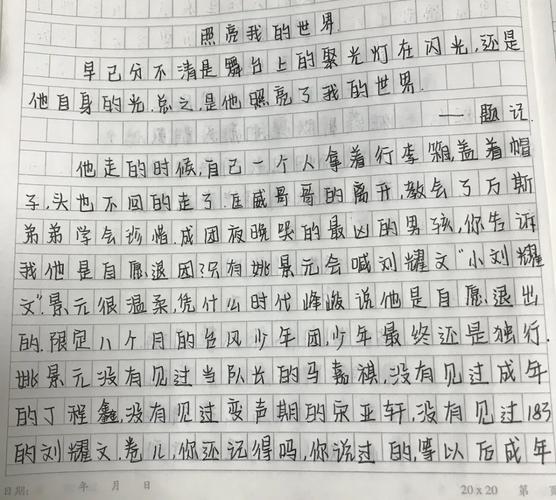 照亮我的世界
早已分不清是舞台上的聚光灯在闪光,还是
他自身的光.总之,是他照亮了我的世界.
——题记.
他走的时候,自己一个人拿着行李箱,盖着帽
子,头也不回的走了.匡威哥哥的离开,教会了万斯
弟弟学会珍惜.成团夜晚哭的最凶的男孩,你告诉
我他是自愿退团?只有姚景元会喊刘耀文“小刘耀
文”.景元很温柔,凭什么时代峰峻说他是自愿退出
的.限定八个月的台风少年团,少年最终还是独行.
姚景元没有见过当队长的马嘉祺,没有见过成年
的丁程鑫,没有见过变声期的宋亚轩,没有见过183
的刘耀文.卷儿,你还记得吗,你说过的,等以后成年
日期: 年 月 日
20 x 20 第 页